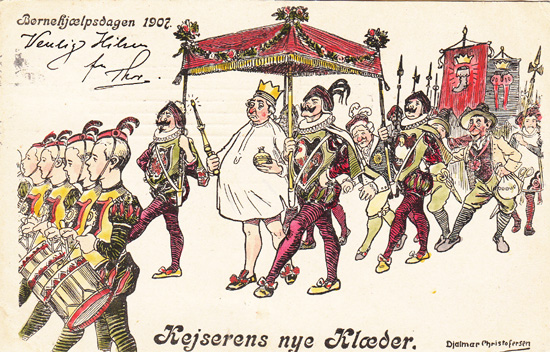 Børnehjælpsdagen 1907.
Venlig Hilsen
fra
Kejserens nye Klæder.
Djalmar Christofersen